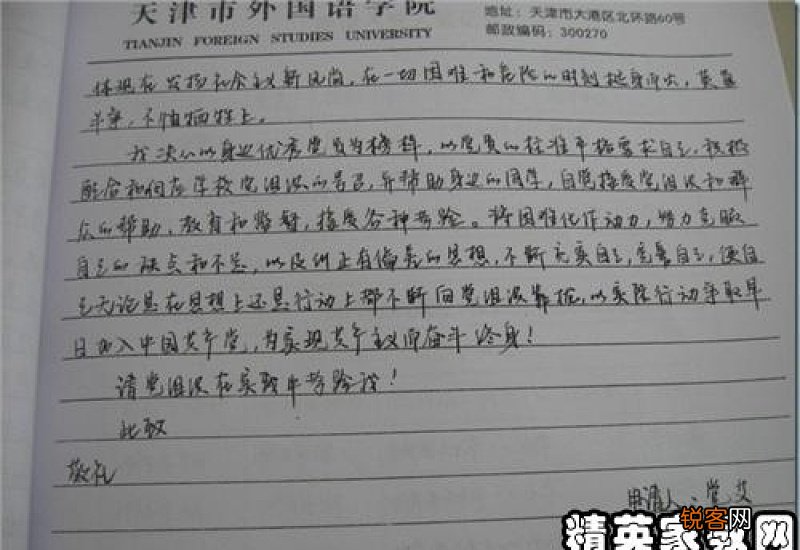 天津市外国语学院
TIANJIN FOREIGN STUDIES UNIVERSITY
地址：天津市大港区北环路60号
邮政编码：300270
体现在发扬社会主义新风尚，在一切困难和危险的时刻挺身而出，英勇
斗争，不怕牺牲上。
我决心以身边优秀党员为榜样，以党员的标准严格要求自己，积极
配合和响应学校党组织的号召，并帮助身边的同学，自觉接受党组织和群
众的帮助、教育和监督，接受各种考验。将困难化作动力，努力克服
自己的缺点和不足，以及纠正有偏差的思想，不断充实自己，完善自己，使自
己无论是在思想上还是行动上都不断向党组织靠拢，以实际行动争取早
日加入中国共产党，为实现共产主义而奋斗终身！
请党组织在实践中考验我！
此致
敬礼
申请人：
精英家教网
锐客网